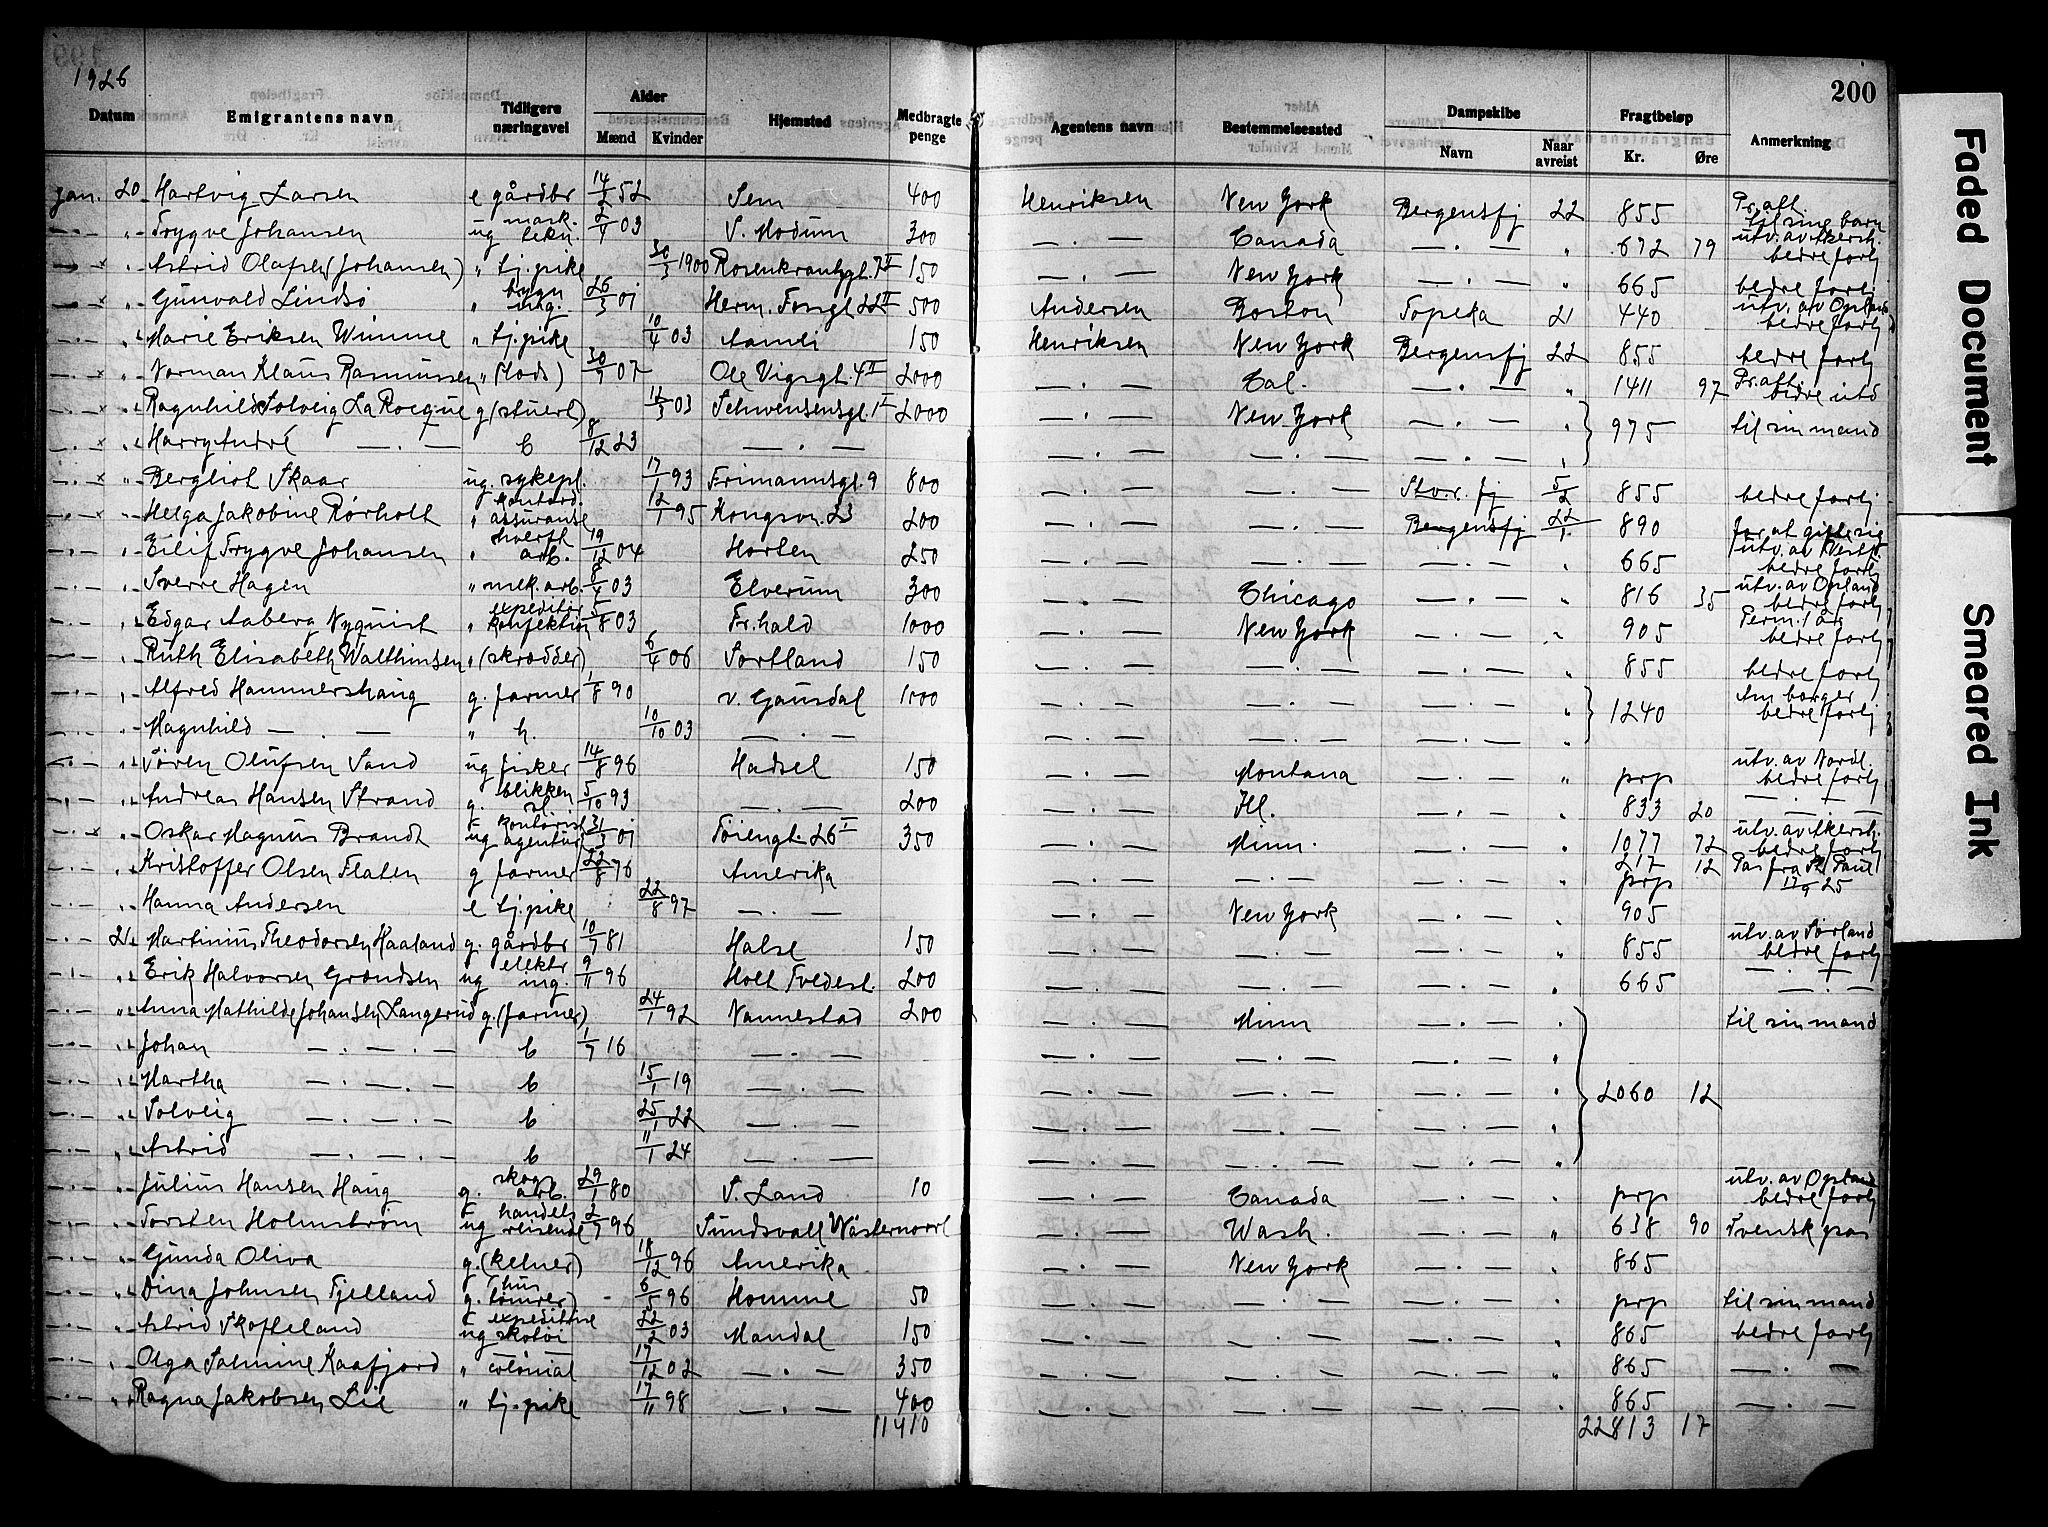 200
1926
Datum Emigrantens navn Tidligere næringsvei Alder Mænd Kvinder Hjemsted Medbragte penge Agentens navn Bestemmelsessted Dampskibe Navn Naar avreist Fragtbeløp Kr. Øre Anmerkning
Jan. 20 Hartvig Larsen e gårdbr 14/2 52 Sem 400 Henriksen New York Bergensfj 22 855 Pr. aft. til sine barn
" Trygve Johansen ug mask. tekn. 2/4 03 S. Modum 300 — . — Canada — . — " 672 79 utv. av Akersh. bedre forhj
x " Astrid Olafsen (Johansen) " tj. pike 30/3 1900 Rosenkrantzgt. 7 II 150 — . — New York — . — " 665 bedre forhj
x " Gunvald Lindsö " bygn ing. 26/3 01 Herm. Fossgt 22 II 500 Andersen Boston Topeka 21 440 utv. av Opland bedre forhj
" Marie Eriksen Wimme " tj. pike 10/4 03 Aamli 150 Henriksen New York Bergensfj 22 855 bedre forhj
x " Norman Klaus Rasmussen " (lods) 30/9 07 Ole Vigsgt. 4 II 2000 — . — Cal. — . — " 1411 97 Pr. aft. bedre utd
x " Ragnhild Solveig La Rocque g (stuert) 12/3 03 Schwensensgt. 1 I 2000 — . — New York — . — " 975 til sin mand
x " Harry André — . — b 8/12 23 — . — — . — — . — — . — "
x " Bergliot Skaar ug. sykepl. 17/1 93 Frimannsgt. 9 800 — . — — . — Stvr. fj 5/2 855 bedre forhj
x " Helga Jakobine Rørholt " kontord assuranse 12/1 95 Kongsv. 23 200 — . — — . — Bergensfj 22/1 890 for at gifte sig
" Eilif Trygve Johansen " tverft arb. 19/12 04 Horten 250 — . — — . — — . — " 665 utv. av Vestf. bedre forhj
" Sverre Hagen " mek. arb. 8/4 03 Elverum 300 — . — Chicago — . — " 816 35 utv. av Opland bedre forhj
" Edgar Aaberg Nyquist " expeditør konfektion 5/8 03 Fr.hald 1000 — . — New York — . — " 905 Perm. 1 år bedre forhj
" Ruth Elisabeth Walthinsen " (skrædder) 6/4 06 Sortland 150 — . — — . — — . — " 855 bedre forhj
" Alfred Hammershaug g. farmer 1/8 90 v. Gausdal 1000 — . — — . — — . — " 1240 Am borger bedre forhj
" Magnhild — . — " h. 10/10 03 — . — — . — — . — — . — "
" Sören Olufsen Sand ug fisker 14/8 96 Hadsel 150 — . — Montana — . — " prp utv. av Nordl. bedre forhj
" Andreas Hansen Strand g. blikken sl. 5/10 93 — . — 200 — . — Ill. — . — " 833 20 — . —
x " Oskar Magnus Brandt ug f. kontorist agentur 31/3 01 Töiengt. 26 I 350 — . — Minn. — . — " 1077 72 utv. av Akersh. bedre forhj
" Kristoffer Olsen Flaten g farmer 22/8 76 Amerika — . — — . — — . — " 217 12 prp Pas fra St Paul 17/9 25
" Hanna Andersen e tj. pike 22/8 97 — . — — . — New York — . — " 905
21 Martinius Theodorsen Haaland g. gårdbr 10/7 81 Halse 150 — . — — . — — . — " 855 utv. av Sørland bedre forhj
" Erik Halvorsen Gröndsen ug elektr ing. 9/11 96 Holt Tvedest. 200 — . — — . — — . — " 665 — . —
" Anna Mathilde Johansen Langerud g. (farmer) 24/1 92 Nannestad 200 — . — Minn — . — " til sin mand
" Johan — . — . — b 1/7 16 — . — — . — — . — — . — "
" Martha — . — . — b 15/1 19 — . — — . — — . — — . — " 2060 12
" Solveig — . — . — b 25/1 22 — . — — . — — . — — . — "
" Astrid — . — . — b 11/1 24 — . — — . — — . — — . — "
" Julius Hansen Haug g. skogs arb. 29/1 80 S. Land 10 — . — Canada — . — " prp utv. av Opland bedre forhj
" Torsten Holmström ug f. handels reisende 2/7 96 Sundsvall Wästernorrl — . — Wash. — . — " 638 90 Svensk pas
" Gunda Oliva g. (kelner) 18/12 96 Amerika — . — New York — . — " 865
" Dina Johnsen Fjelland g. (hus tömrer) 6/5 96 Homme 50 — . — — . — — . — " prp til sin mand
" Astrid Skofteland ug f. expeditrise skotöi 22/2 03 Mandal 150 — . — — . — — . — " 865 bedre forhj
" Olga Salmine Kaafjord " colonial 17/12 02 — . — 350 — . — — . — — . — " 865 — . —
" Ragna Jakobsen Lie " tj. pike 17/11 98 — . — 400 — . — — . — — . — " 865 — . —
11410 22813 17
Faded Document
Smeared Ink